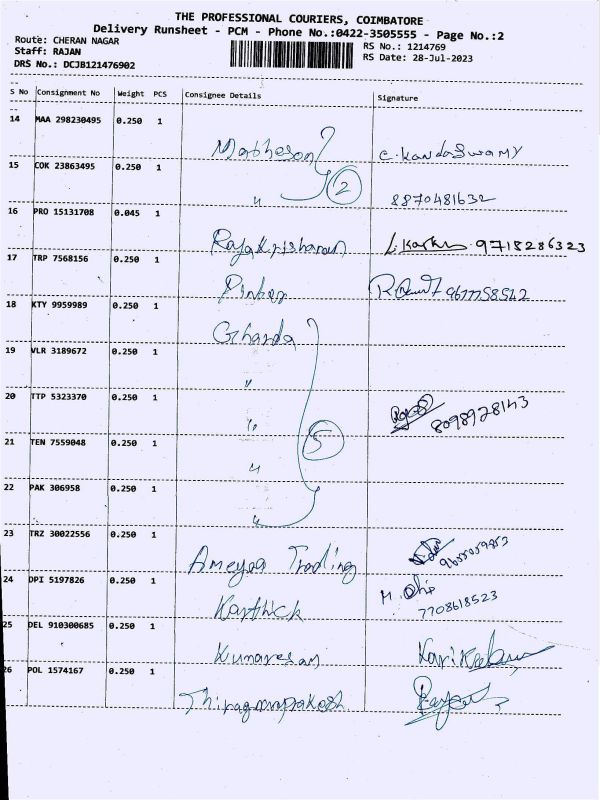 THE PROFESSIONAL COURIERS, COIMBATORE
Delivery Runsheet - PCM - Phone No.:0422-3505555 - Page No.:2
Route: CHERAN NAGAR
RS No.: 1214769
Staff: RAJAN
RS Date: 28-Jul-2023
DRS No.: DCJB121476902
S No Consignment No Weight PCS Consignee Details Signature
14 MAA 298230495 0.250 1
Matheson C. Kandaswamy
15 COK 23863495 0.250 1
" 2 8870481632
16 PRO 15131708 0.045 1
Rajakrishanan L. 9718286323
17 TRP 7568156 0.250 1
9677758542
18 KTY 9959989 0.250 1
Gharda
19 VLR 3189672 0.250 1
"
20 TTP 5323370 0.250 1
" 8098928143
21 TEN 7559048 0.250 1
" 5
22 PAK 306958 0.250 1
"
23 TRZ 30022556 0.250 1
Ameyaa Trading 9655059853
24 DPI 5197826 0.250 1
Karthick M.
7708618523
25 DEL 910300685 0.250 1
Kumaresan
26 POL 1574167 0.250 1